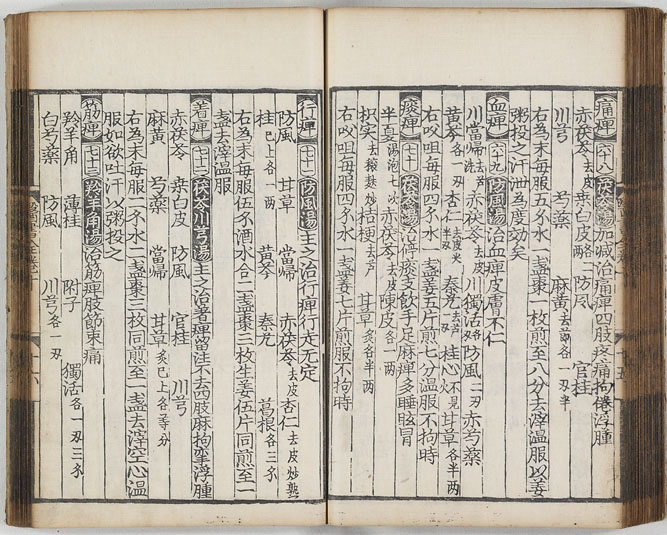 痛痺 六十八 茯苓湯加減治痛痺四肢疼痛拘倦浮腫
赤茯苓去皮 桒白皮各二兩 防风 官桂
川芎 芍藥 麻黃去節各一刄半
右為末每服五分水一盞棗一枚煎至八分去滓温服以姜
粥投之汗泄為度効矣
血痺 六十九 防風湯治血痺皮膚不仁
川當歸洗去芦 赤茯苓去皮 川獨活 防風二刄 赤芍藥
黃芩各一刄 杏仁去皮火半刄 秦艽一刄去芦 桂心不見火 甘草各半两
右㕮咀每服四分水一盞姜五片煎七分温服不拘時
痰痺 七十 茯苓湯治停痰支飲手足麻痺多睡眩冒
半夏湯泡七次 赤茯苓去皮 陳皮各一两
枳实去穣麩炒 桔梗去芦 甘草炙各半两
右㕮咀每服四分水一盞姜七片煎服不拘時
行痺 七十一 防風湯主之治行痺行走无定
防風 甘草 當歸 赤茯苓去皮 杏仁去皮炒熟
桂已上各一两 黃芩 秦艽 葛根各三分
右為末每服伍分酒水合二盞棗三枚生姜伍片同煎至一
盞去滓温服
着痺 七十二 茯苓川芎湯主之治著痺留注不去四肢麻拘挛浮腫
赤茯苓 桒白皮 防風 官桂 川芎
麻黃 芍藥 當歸 甘草炙巳上各等分
右為末每服二分水二盞棗三枚同煎至一盞去滓空心温
服如欲吐汗以粥投之
筋痺 七十三 羚羊角湯治筋痺肢節束痛
羚羊角 薄桂 附子 獨活各一刄三分
白芍藥 防風 川芎各一刄